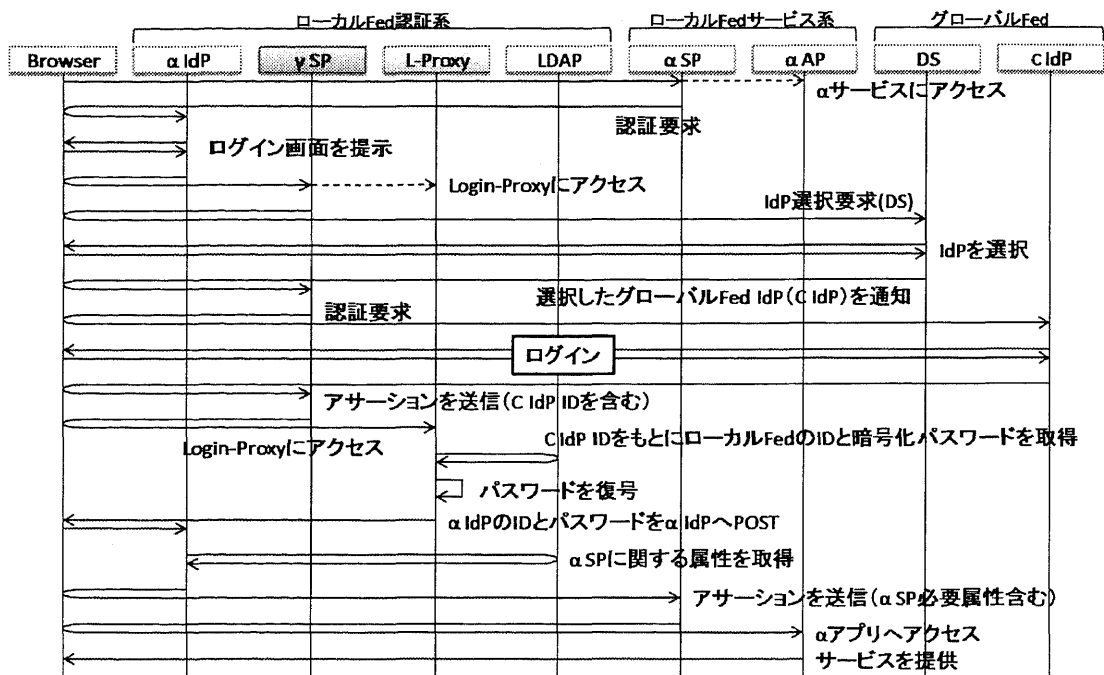 ローカルFed認証系 ローカルFedサービス系 グローバルFed
Browser α IdP γ SP L-Proxy LDAP α SP α AP DS C IdP
αサービスにアクセス
認証要求
ログイン画面を提示
Login-Proxyにアクセス
IdP選択要求(DS)
IdPを選択
選択したグローバルFed IdP(C IdP)を通知
認証要求
ログイン
アサーションを送信(C IdP IDを含む)
Login-Proxyにアクセス
C IdP IDをもとにローカルFedのIDと暗号化パスワードを取得
パスワードを復号
α IdPのIDとパスワードをα IdPへPOST
α SPに関する属性を取得
アサーションを送信(α SP必要属性含む)
αアプリへアクセス
サービスを提供